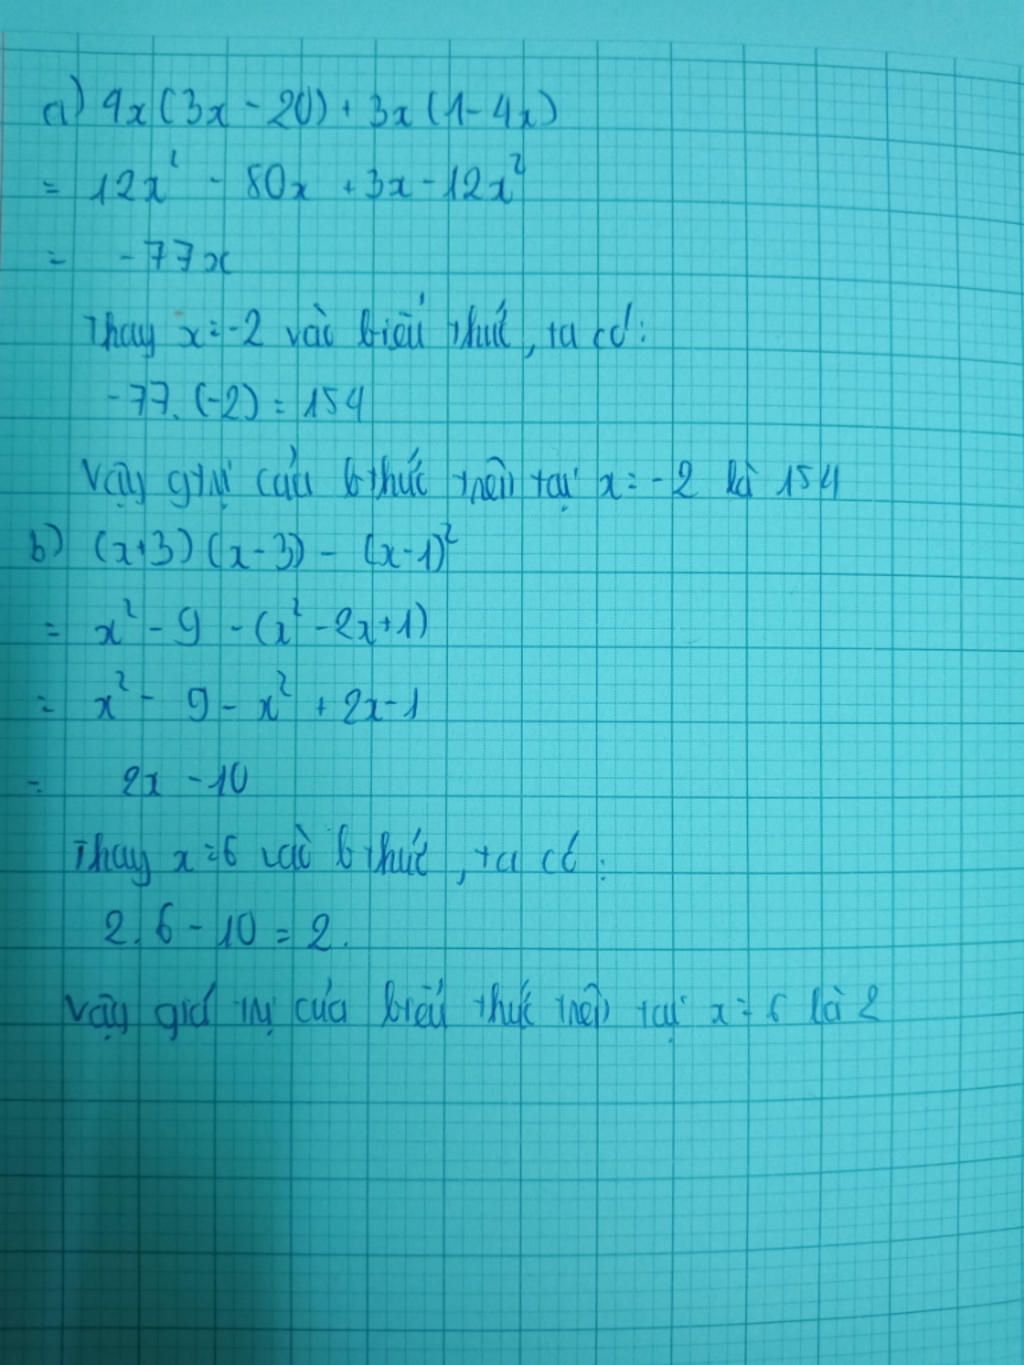 a) 4x(3x - 20) + 3x(1 - 4x)
= 12x² - 80x + 3x - 12x²
= -77x
Thay x = -2 vào biểu thức, ta có:
-77. (-2) = 154
Vậy gtrị của bthức trên tại x = -2 là 154
b) (x+3) (x - 3) - (x - 1)²
= x² - 9 - (x² - 2x + 1)
= x² - 9 - x² + 2x - 1
= 2x - 10
Thay x = 6 vào bthức, ta có:
2. 6 - 10 = 2.
Vậy giá trị của biểu thức trên tại x = 6 là 2